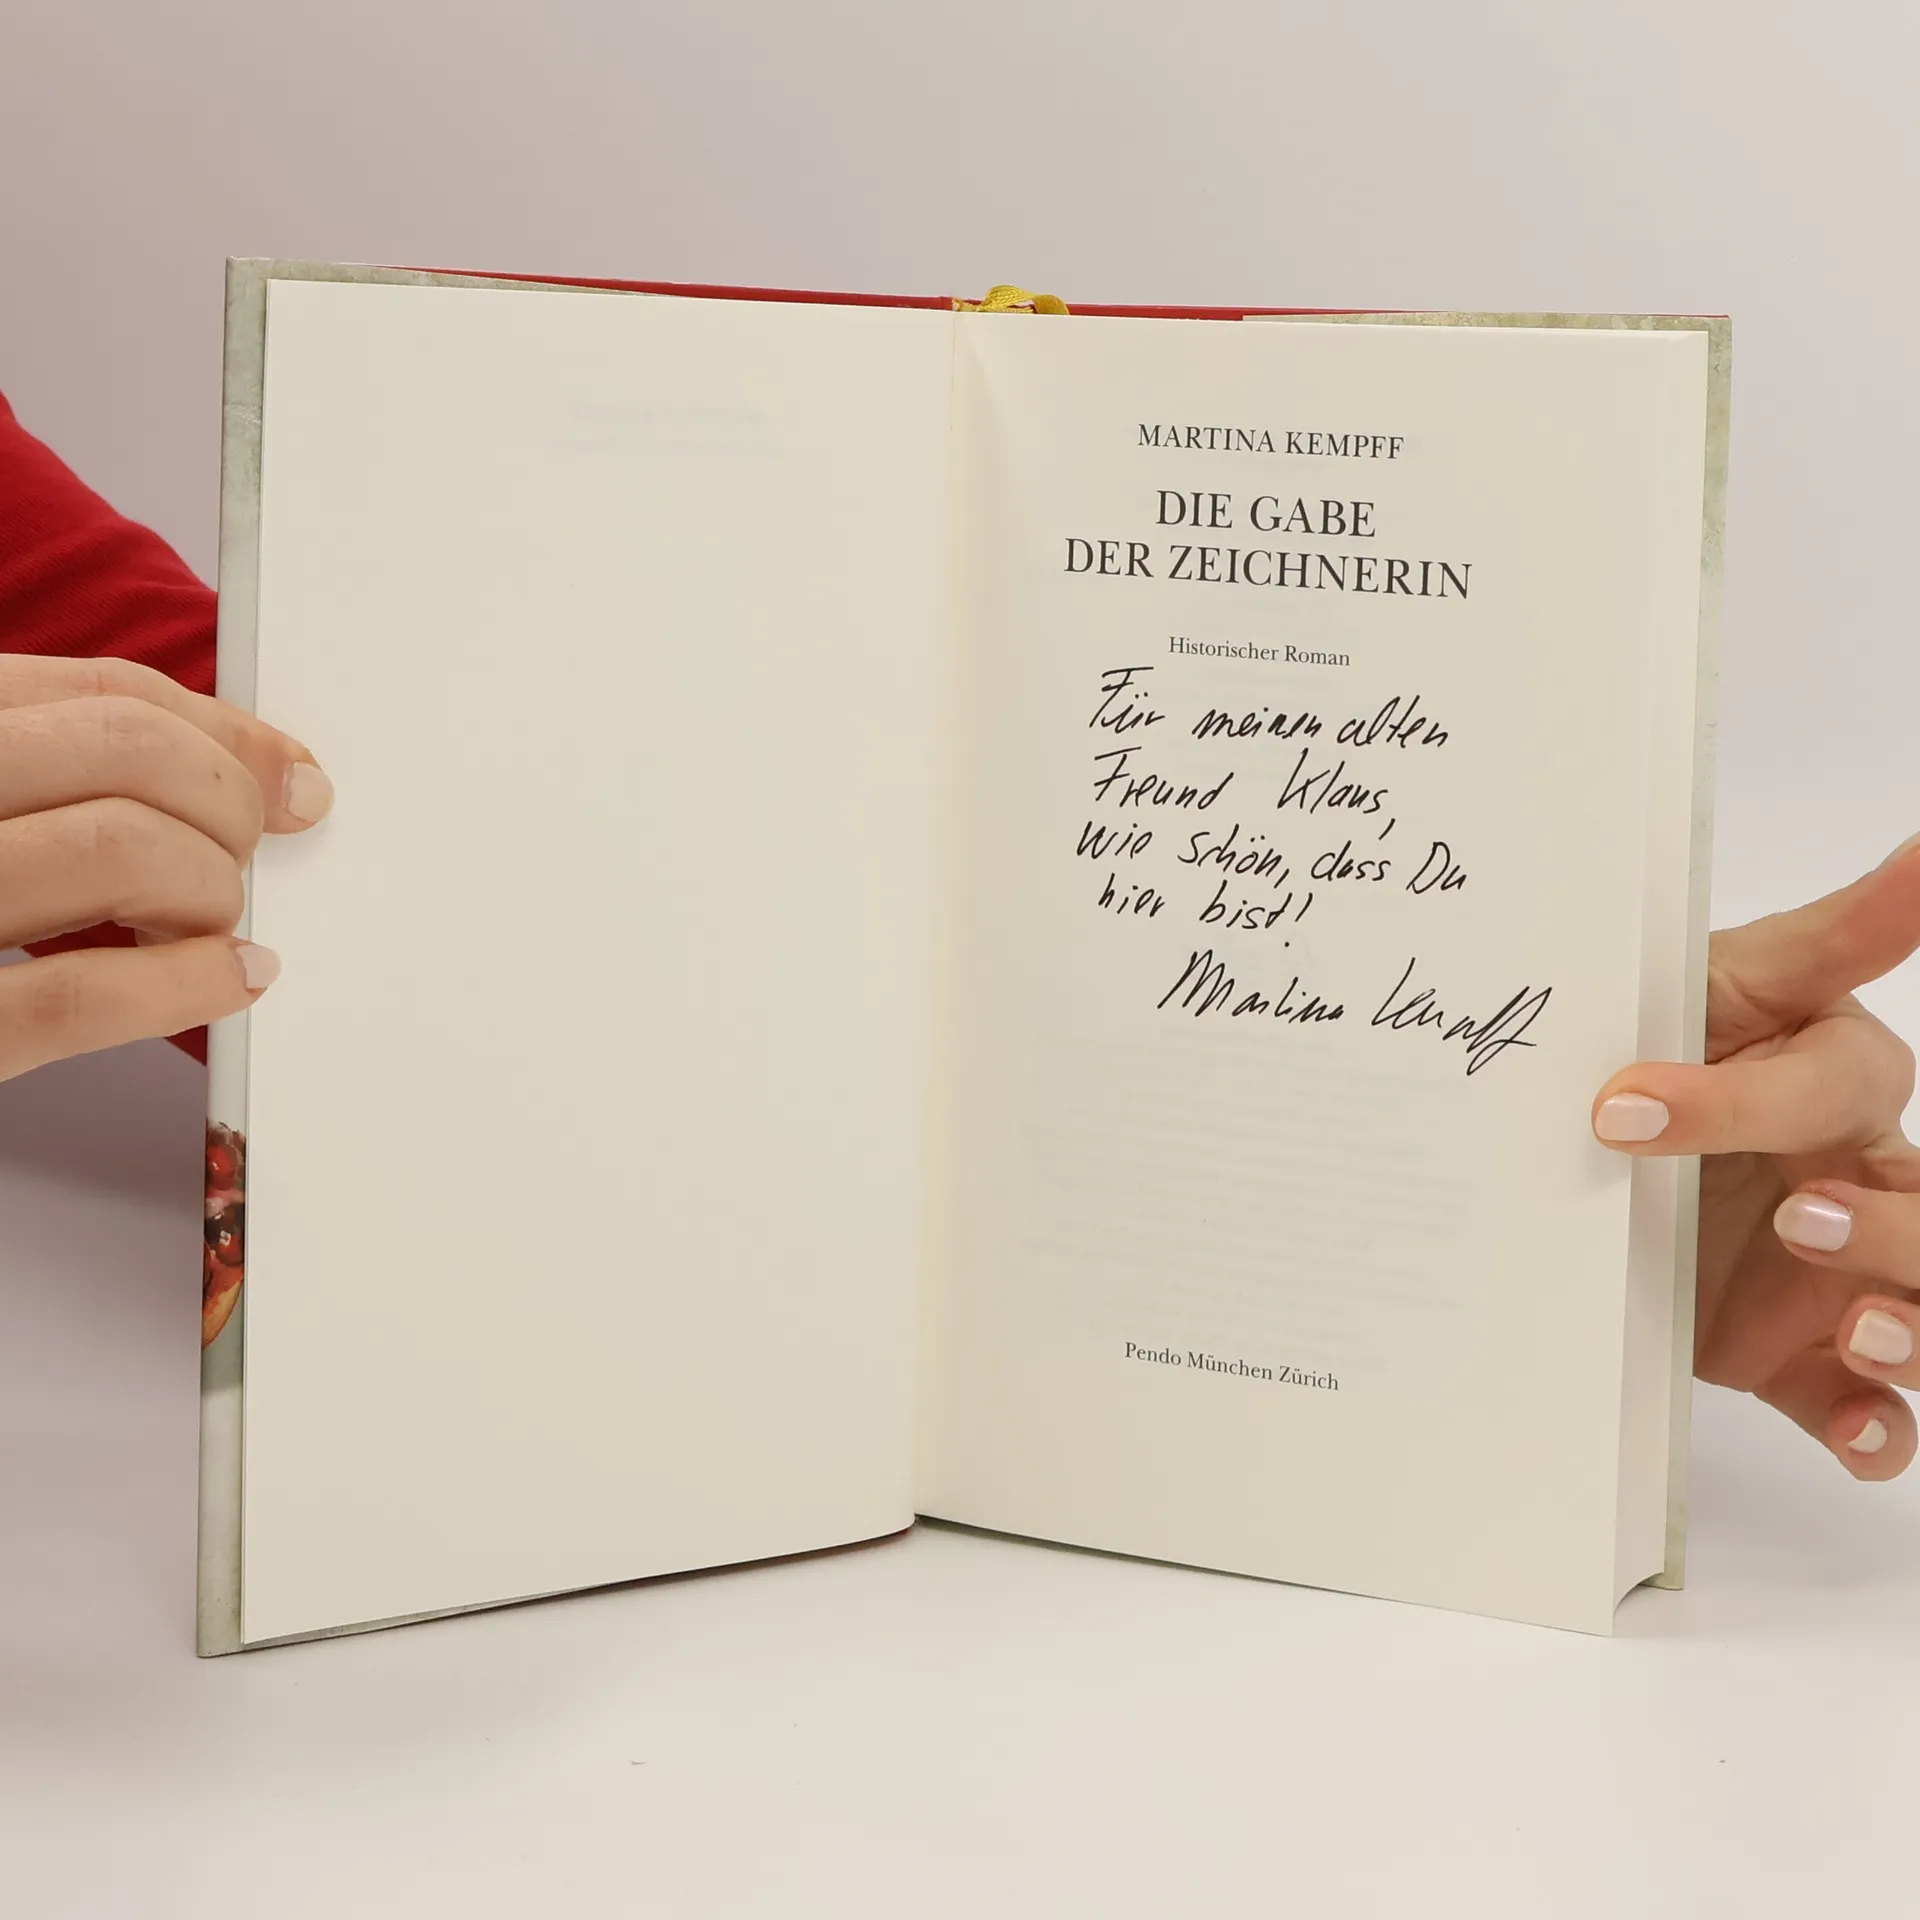 MARTINA KEMPFF
DIE GABE
DER ZEICHNERIN
Historischer Roman
Für meinen alten
Freund Klaus,
wie schön, dass Du
hier bist!
Martina Kempff
Pendo München Zürich